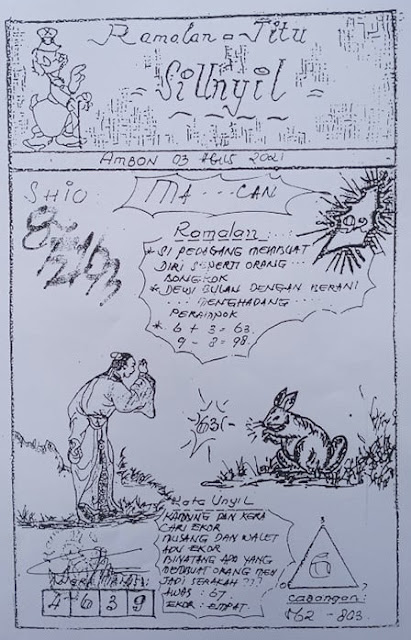 Ramalan = Jitu
SiUnyil
AMBON 03 AGUS 2021
SHIO
MA...CAN
Ramalan:
* SI PEDAGANG MEMBUAT
DIRI SEPERTI ORANG
BONGKOK
* DEWI BULAN DENGAN BERANI
... MENGHADANG
PERAMPOK
*. 6 + 3 = 63.
9 - 8 = 98.
63/-
Kata Unyil
KAMBING DAN KERA
CARI EKOR
MUSANG DAN WALET
ADU EKOR
BINATANG APA YANG
MEMBUAT ORANG MEN
JADI SERAKAH ???
AWAS: 67.
EKOR: EMPAT.
4 - 6 3 9
CABANGAN:
- 803